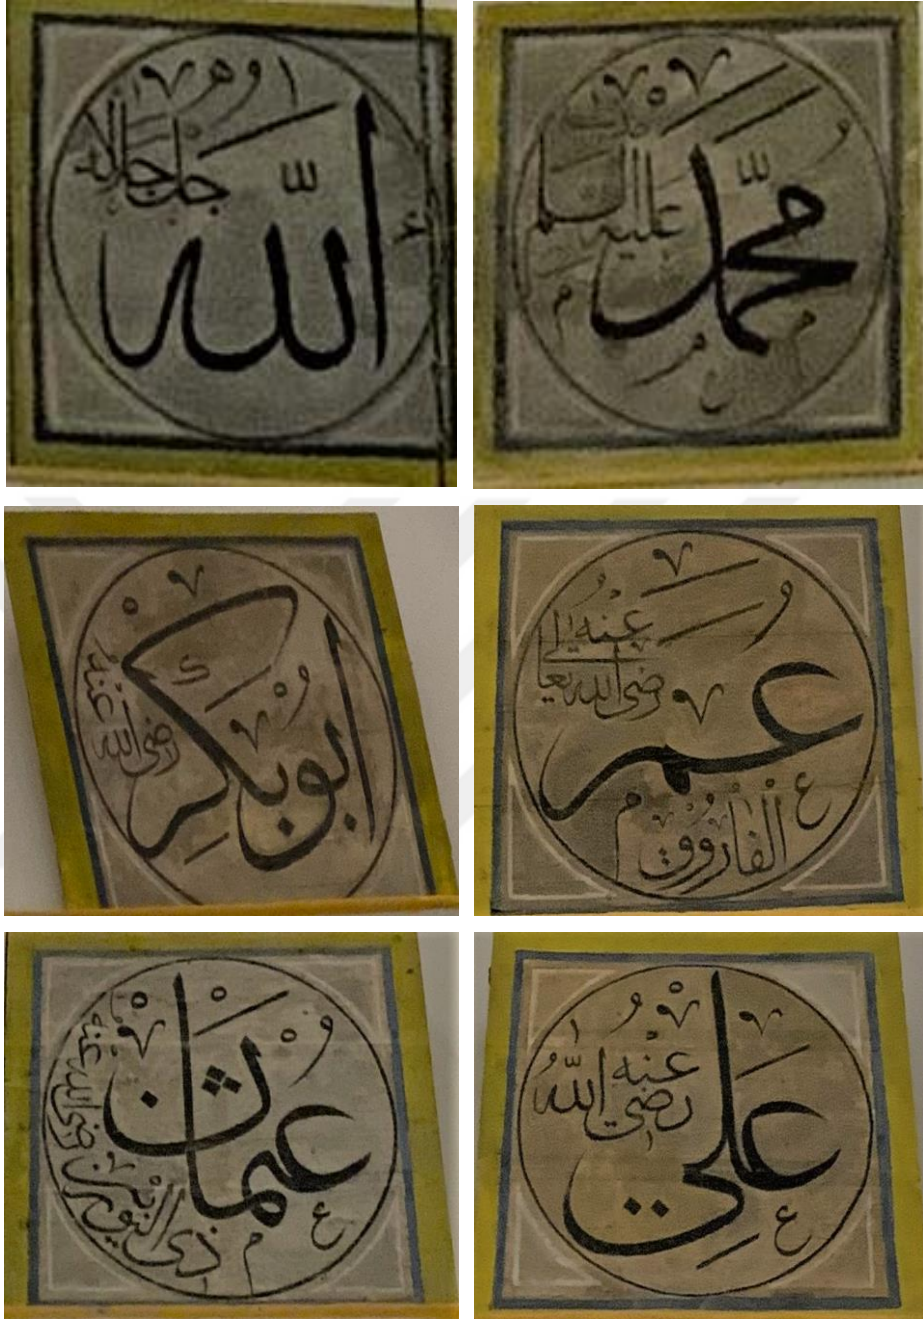 الله جل جلاله
محمد عليه السلام
ابو بكر رضى الله عنه
عمر الفاروق رضى الله تعالى عنه
عثمان ذى النورين رضى الله عنه
على رضى الله عنه